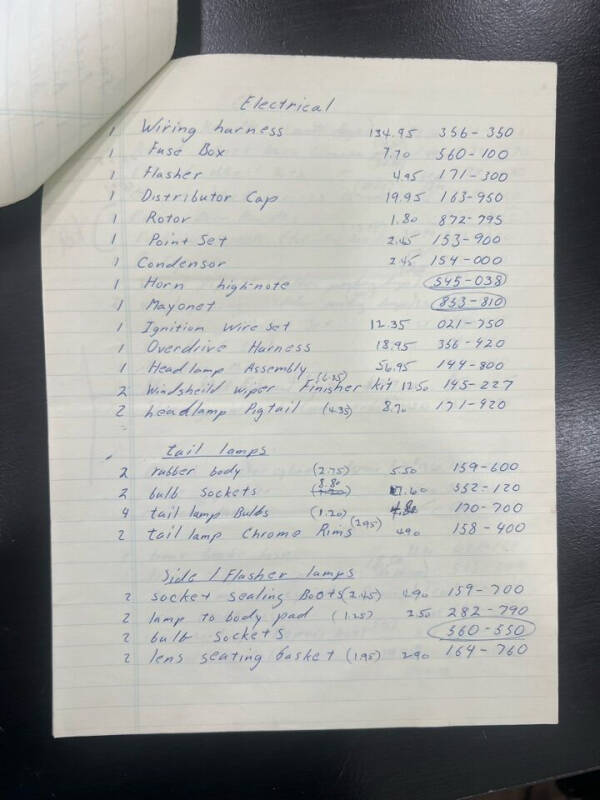 Electrical
1 Wiring harness 134.95 356-350
1 Fuse Box 7.70 560-100
1 Flasher 4.95 171-300
1 Distributor Cap 19.95 163-950
1 Rotor 1.80 872-795
1 Point Set 2.45 153-900
1 Condensor 2.45 154-000
1 Horn high-note 545-038
1 Mayonet 853-810
1 Ignition Wire Set 12.35 021-750
1 Overdrive Harness 18.95 356-420
1 Headlamp Assembly 56.95 144-800
2 Windsheild wiper Finisher kit (6.25) 12.50 145-227
2 headlamp Pigtail (4.35) 8.70 171-920
tail lamps
2 rubber body (2.75) 5.50 159-600
2 bulb sockets 8.80 (1.20) 17.60 552-120
4 tail lamp Bulbs (1.20) 4.80 170-700
2 tail lamp Chrome Rims (2.95) 4.90 158-400
Side / Flasher lamps
2 socket sealing Boots (2.45) 4.90 159-700
2 lamp to body pad (1.25) 2.50 282-790
2 bulb sockets 560-550
2 lens seating basket (1.95) 2.90 164-760